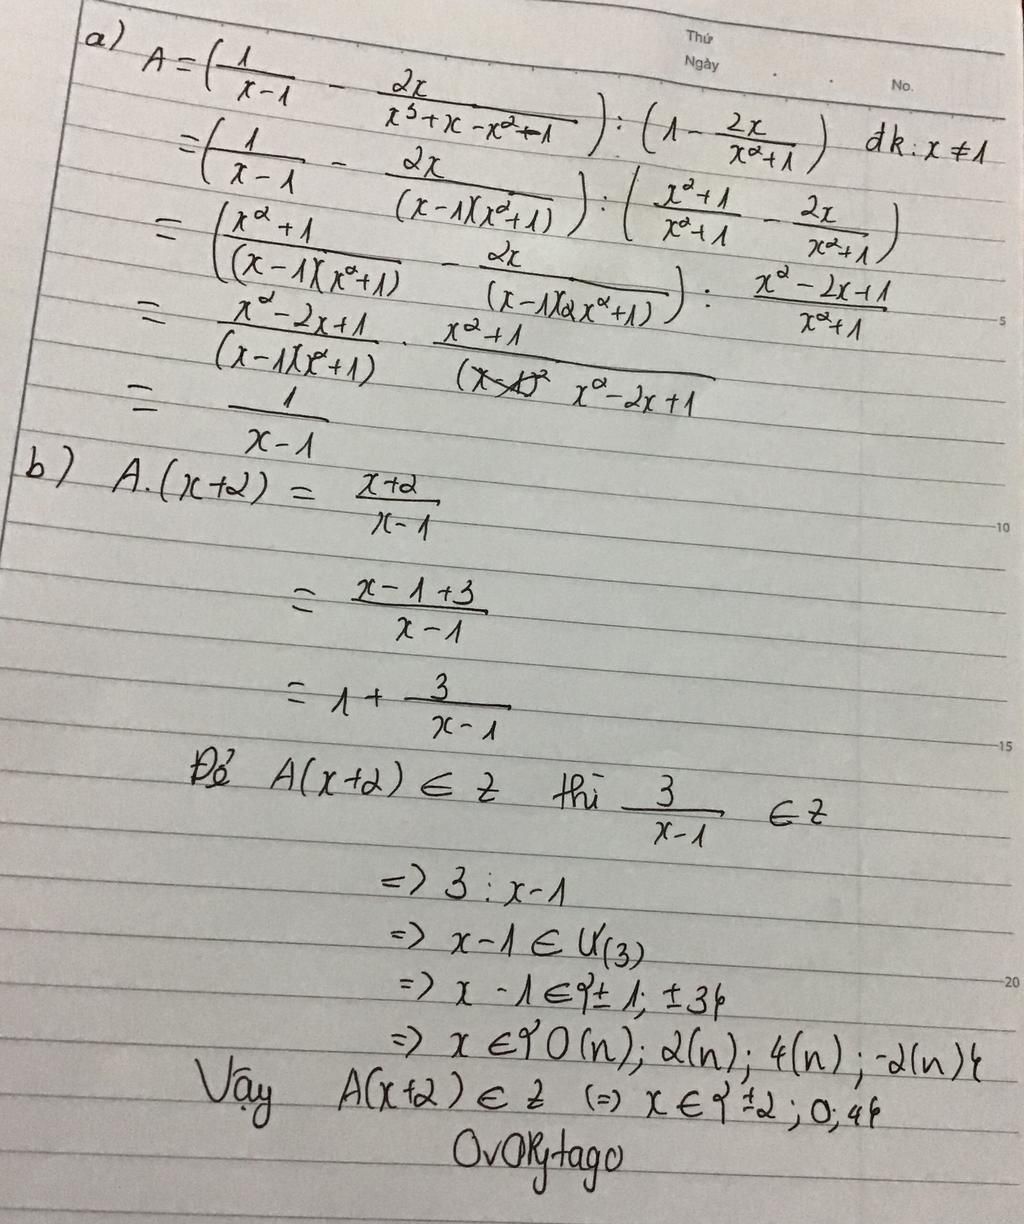 Thứ
Ngày . . No.
a) A = (1/(x-1) - 2x/(x³+x-x²-1)) : (1 - 2x/(x²+1)) đk: x ≠ 1
= (1/(x-1) - 2x/((x-1)(x²+1))) : ((x²+1)/(x²+1) - 2x/(x²+1))
= ((x²+1)/((x-1)(x²+1)) - 2x/((x-1)(2x²+1))) : (x²-2x+1)/(x²+1)
5
= (x²-2x+1)/((x-1)(x²+1)) . (x²+1)/(x²-2x+1)
= 1/(x-1)
b) A.(x+2) = (x+2)/(x-1)
10
= (x-1+3)/(x-1)
= 1 + 3/(x-1)
15
Để A(x+2) ∈ Z thì 3/(x-1) ∈ Z
=> 3 ⋮ x-1
=> x-1 ∈ Ư(3)
=> x-1 ∈ {±1; ±3}
20
=> x ∈ {0(n); 2(n); 4(n); -2(n)}
Vậy A(x+2) ∈ Z (=) x ∈ {±2; 0; 4}